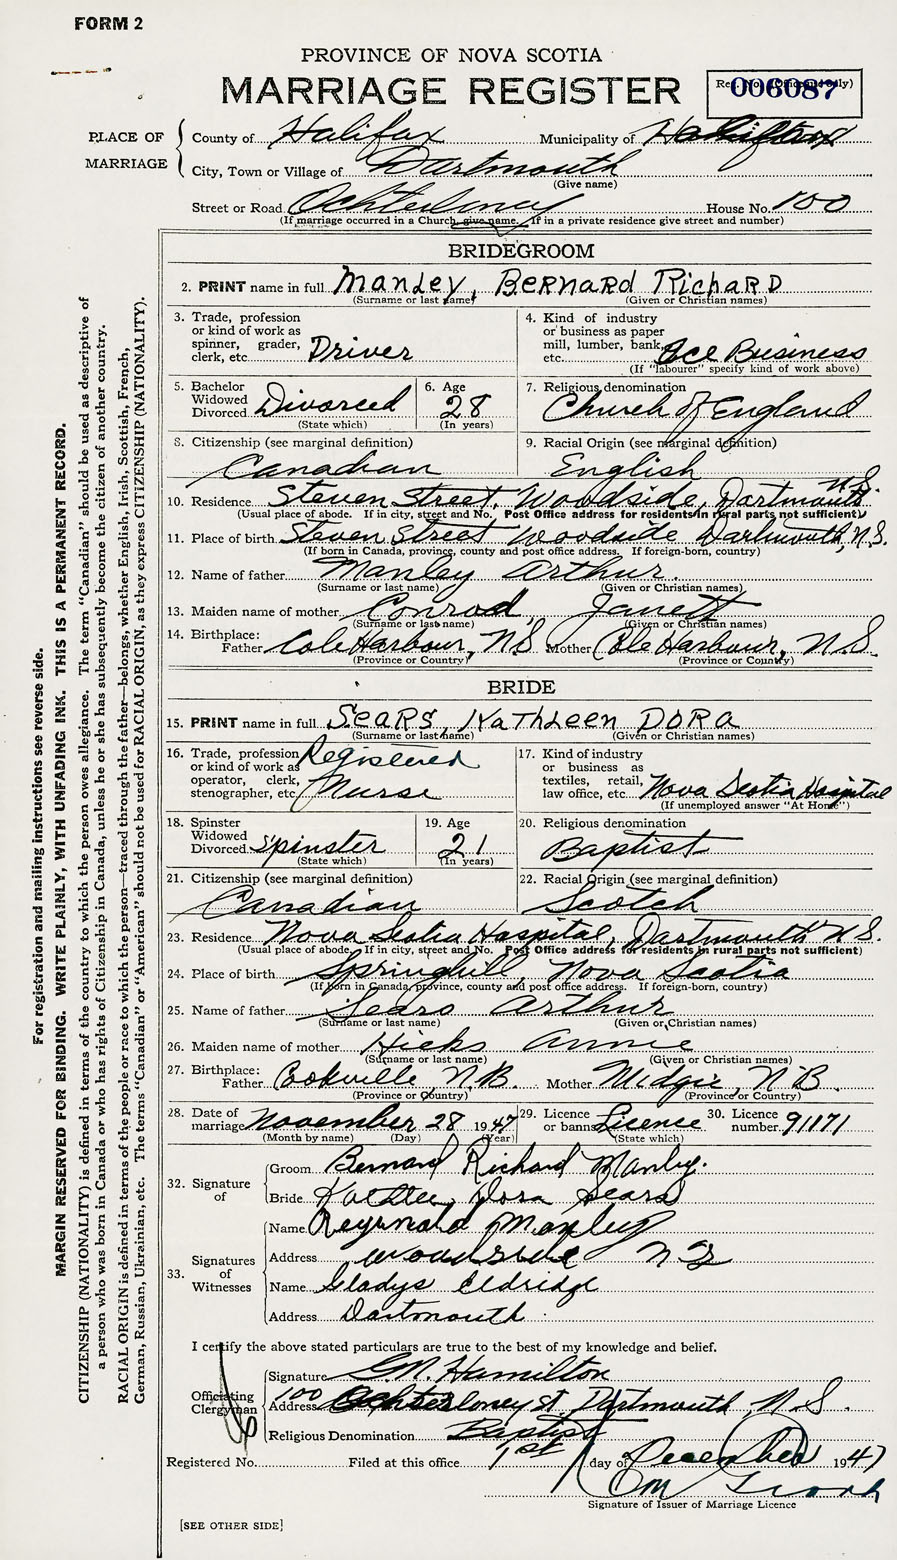 FORM 2
PROVINCE OF NOVA SCOTIA
MARRIAGE REGISTER
006087
PLACE OF MARRIAGE
County of Halifax Municipality of Halifax
City, Town or Village of Dartmouth
(Give name)
Street or Road Ochterloney House No. 100
(If marriage occurred in a Church, give name. If in a private residence give street and number)
BRIDEGROOM
2. PRINT name in full Manley, Bernard Richard
(Surname or last name) (Given or Christian names)
3. Trade, profession or kind of work as spinner, grader, clerk, etc. Driver
4. Kind of industry or business as paper mill, lumber, bank, etc. Ice Business
(If "labourer" specify kind of work above)
5. Bachelor Widowed Divorced Divorced
(State which)
6. Age 28
(In years)
7. Religious denomination Church of England
8. Citizenship (see marginal definition) Canadian
9. Racial Origin (see marginal definition) English
10. Residence Steven Street, Woodside, Dartmouth N.S.
(Usual place of abode. If in city, street and No. Post Office address for residents in rural parts not sufficient)
11. Place of birth Steven Street Woodside Dartmouth, N.S.
(If born in Canada, province, county and post office address. If foreign-born, country)
12. Name of father Manley Arthur.
(Surname or last name) (Given or Christian names)
13. Maiden name of mother Conrod, Janett
(Surname or last name) (Given or Christian names)
14. Birthplace: Father Cole Harbour, N.S. Mother Cole Harbour, N.S.
(Province or Country) (Province or Country)
BRIDE
15. PRINT name in full Sears, Kathleen Dora
(Surname or last name) (Given or Christian names)
16. Trade, profession or kind of work as operator, clerk, stenographer, etc. Registered Nurse
17. Kind of industry or business as textiles, retail, law office, etc. Nova Scotia Hospital
(If unemployed answer "At Home")
18. Spinster Widowed Divorced Spinster
(State which)
19. Age 21
(In years)
20. Religious denomination Baptist
21. Citizenship (see marginal definition) Canadian
22. Racial Origin (see marginal definition) Scotch
23. Residence Nova Scotia Hospital, Dartmouth N.S.
(Usual place of abode. If in city, street and No. Post Office address for residents in rural parts is not sufficient)
24. Place of birth Springhill, Nova Scotia
(If born in Canada, province, county and post office address. If foreign-born, country)
25. Name of father Sears Arthur
(Surname or last name) (Given or Christian names)
26. Maiden name of mother Hicks Annie
(Surname or last name) (Given or Christian names)
27. Birthplace: Father Cookville, N.B. Mother Midgic, N.B.
(Province or Country) (Province or Country)
28. Date of marriage November 28 1947
(Month by name) (Day) (Year)
29. Licence or banns Licence
(State which)
30. Licence number 91171
32. Signature of
Groom Bernard Richard Manley.
Bride Kathleen Dora Sears
33. Signatures of Witnesses
Name Reginald Manley
Address Woodside N S
Name Gladys Eldridge
Address Dartmouth.
I certify the above stated particulars are true to the best of my knowledge and belief.
Officiating Clergyman
Signature G.N. Hamilton
Address 100 Ochterloney St. Dartmouth, N.S.
Religious Denomination Baptist
Registered No. Filed at this office 1st day of December 1947
Signature of Issuer of Marriage Licence
[SEE OTHER SIDE]
For registration and mailing instructions see reverse side.
MARGIN RESERVED FOR BINDING. WRITE PLAINLY, WITH UNFADING INK. THIS IS A PERMANENT RECORD.
CITIZENSHIP (NATIONALITY) is defined in terms of the country to which the person owes allegiance. The term "Canadian" should be used as descriptive of
a person who was born in Canada or who has rights of Citizenship in Canada, unless he or she has subsequently become the citizen of another country.
RACIAL ORIGIN is defined in terms of the people or race to which the person—traced through the father—belongs, whether English, Irish, Scottish, French,
German, Russian, Ukrainian, etc. The terms "Canadian" or "American" should not be used for RACIAL ORIGIN, as they express CITIZENSHIP (NATIONALITY).